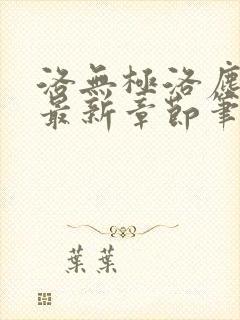 洛無極洛塵
最新章節筆
葉葉